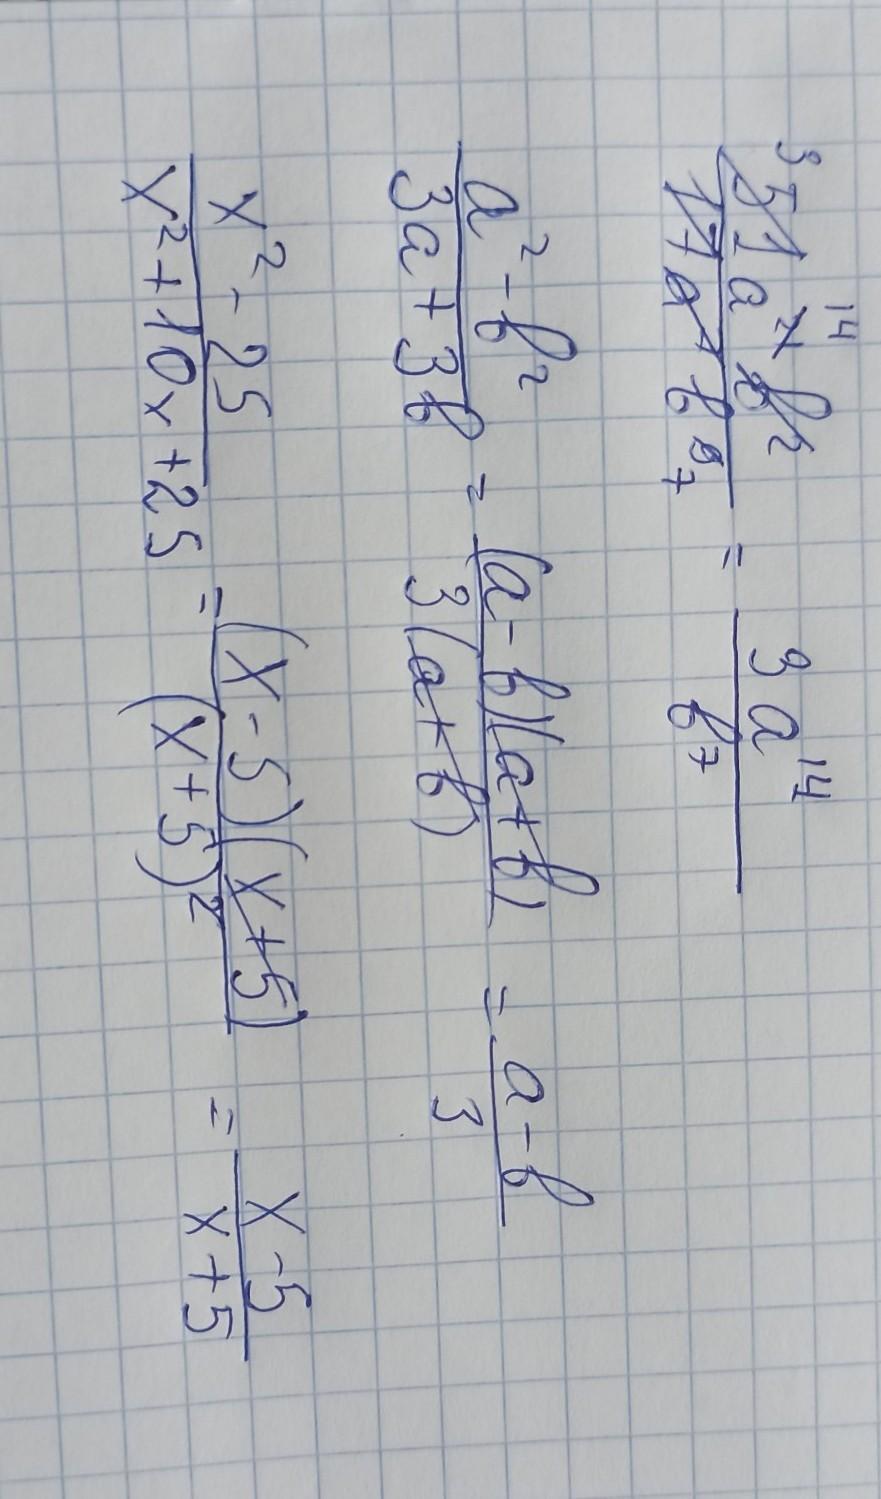 51a²¹b² / 17a⁷b⁹ = 3a¹⁴ / b⁷
a² - b² / 3a + 3b = (a - b)(a + b) / 3(a + b) = a - b / 3
x² - 25 / x² + 10x + 25 = (x - 5)(x + 5) / (x + 5)² = x - 5 / x + 5